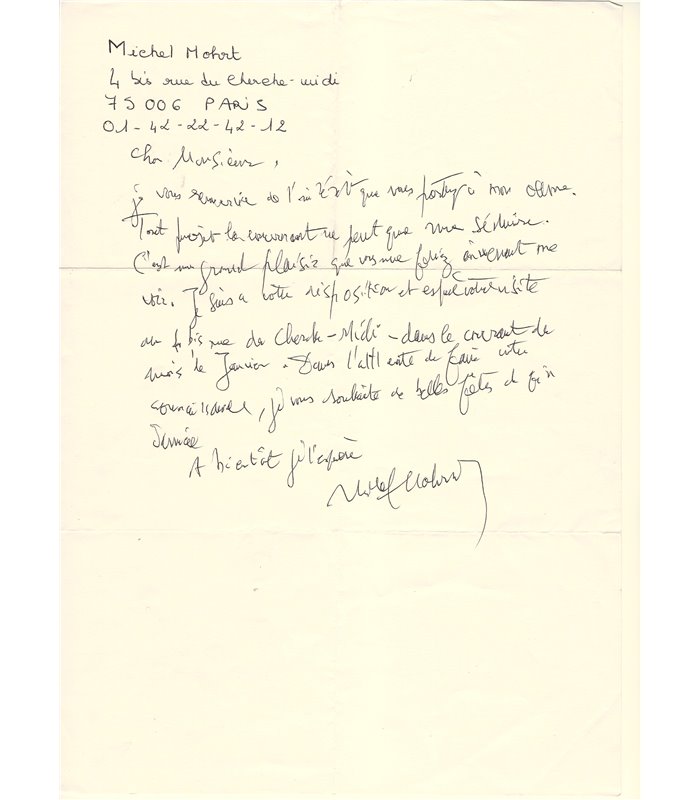 Michel Mohrt
4 bis rue du Cherche-midi
75006 PARIS
01-42-22-42-12
Cher Monsieur,
je vous remercie de l'intérêt que vous portez à mon œuvre.
Tout projet la concernant ne peut que me séduire.
C'est un grand plaisir que vous me feriez en venant me
voir. Je suis à votre disposition et espère votre visite
au 4 bis rue du Cherche-Midi - dans le courant du
mois de Janvier. Dans l'attente de faire votre
connaissance, je vous souhaite de belles fêtes de fin
d'année
A bientôt je l'espère
Michel Mohrt